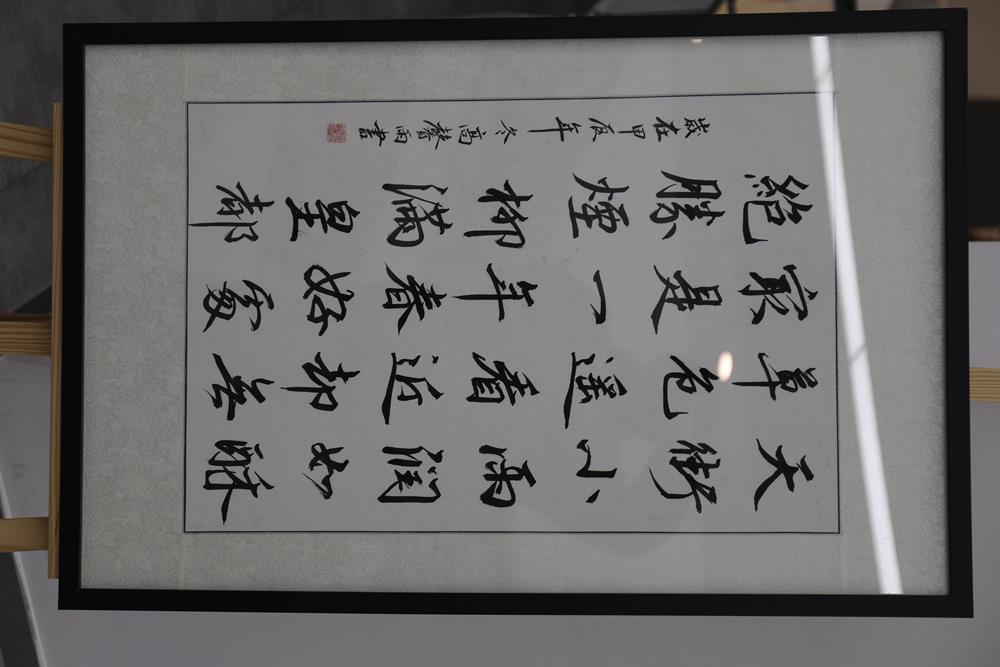 天街小雨潤如酥
草色遥看近却無
最是一年春好處
絕勝煙柳滿皇都
歲在甲辰年冬高馨雨書